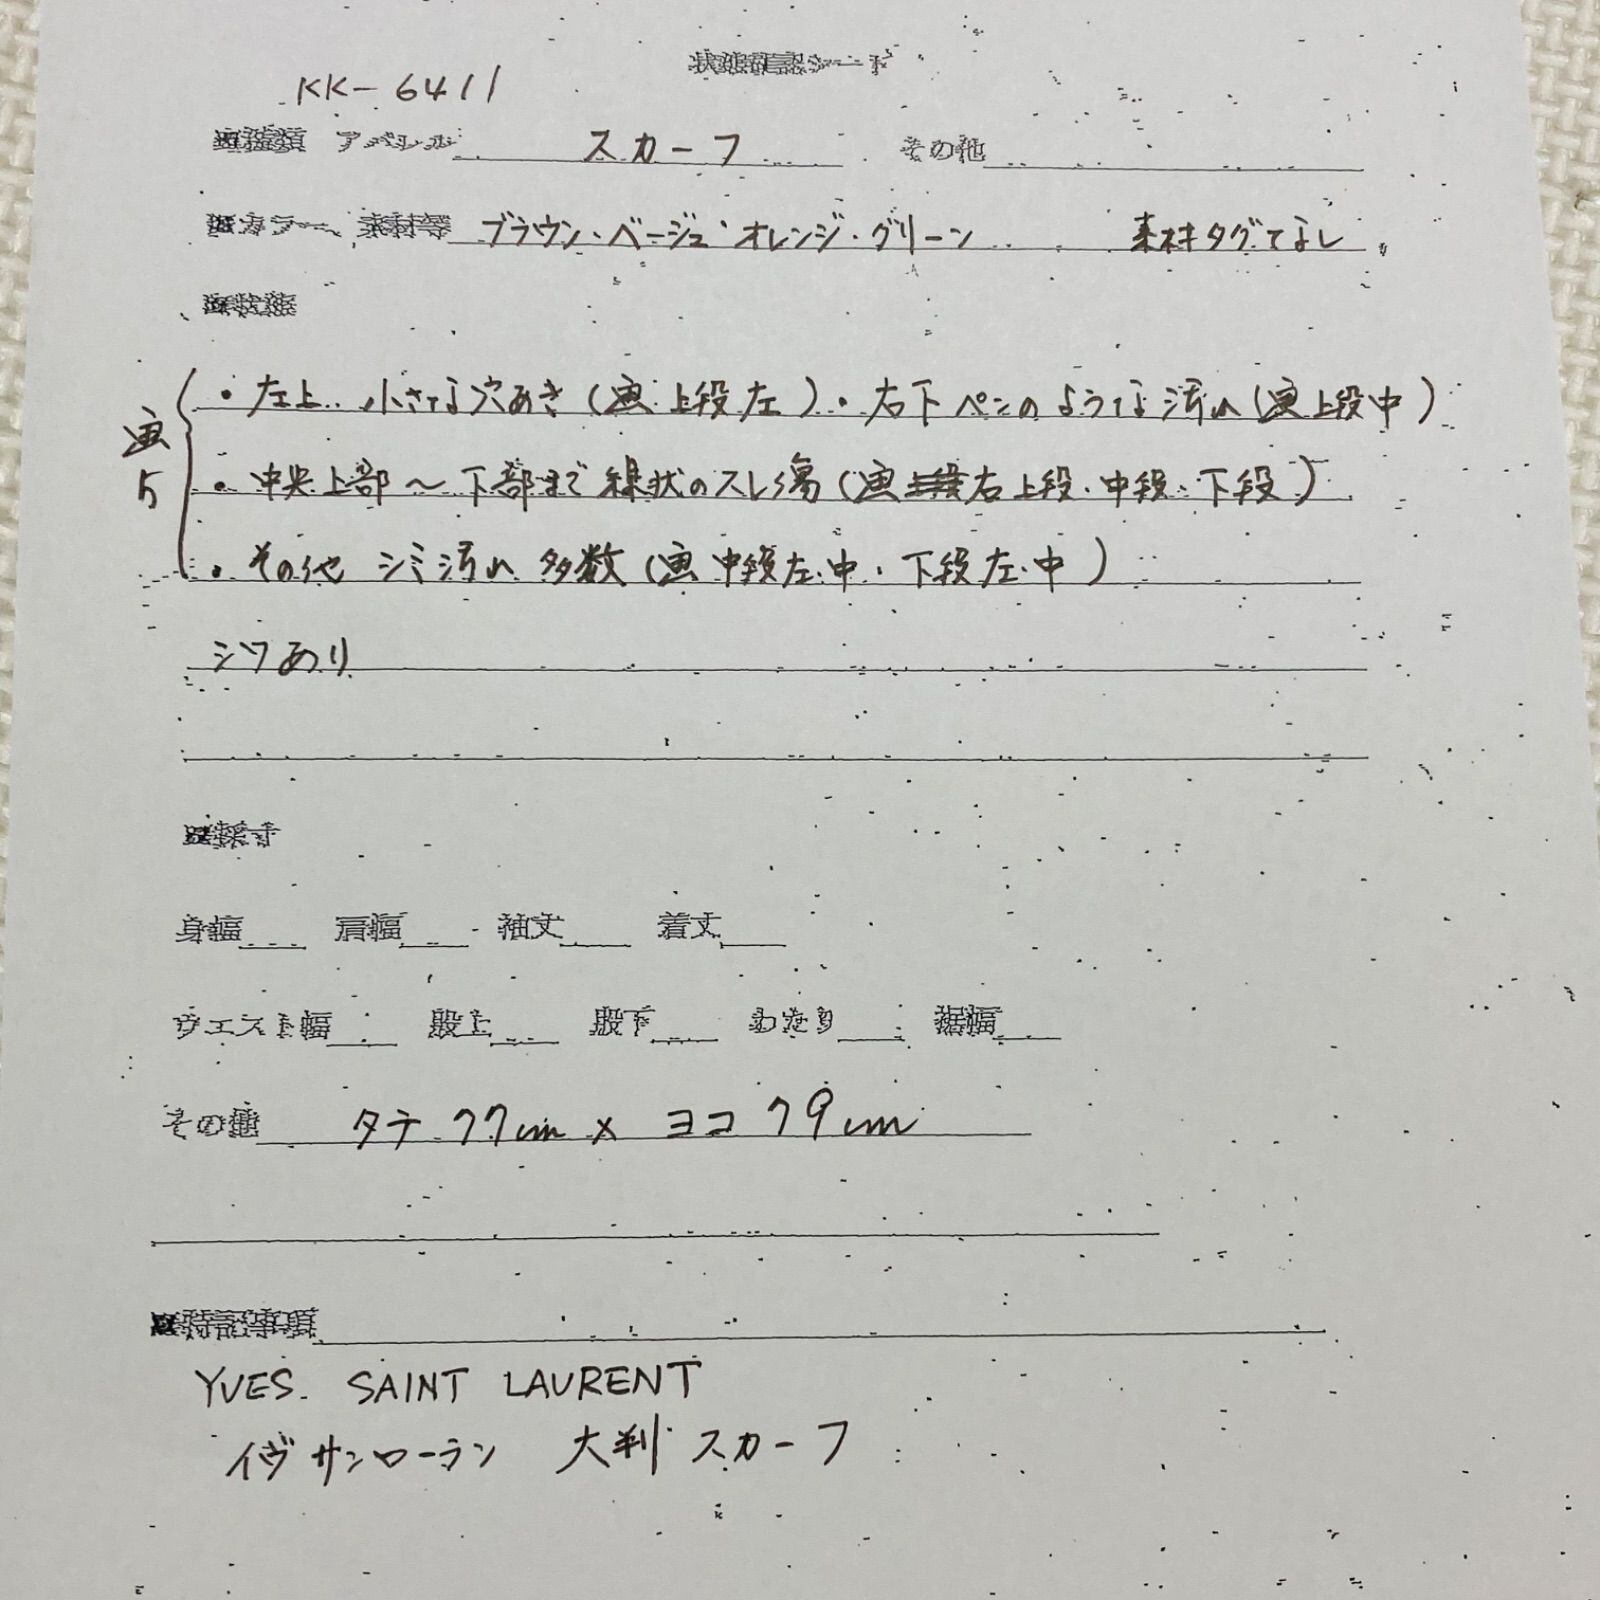 状態確認シート
KK-6411
■種類 アパレル スカーフ その他
■カラー、素材等 ブラウン・ベージュ・オレンジ・グリーン 素材タグなし
■状態
画5
・左上 小さな穴あき(画 上段左)・右下 ペンのような汚れ(画 上段中)
・中央上部～下部まで線状のスレ傷(画 右上段・中段・下段)
・その他 シミ汚れ 多数(画 中段左・中・下段左・中)
シワあり
■採寸
身幅 肩幅 袖丈 着丈
ウエスト幅 股上 股下 わたり 裾幅
その他 タテ 77cm × ヨコ 79cm
■特記事項
YVES. SAINT LAURENT
イヴ サンローラン 大判 スカーフ